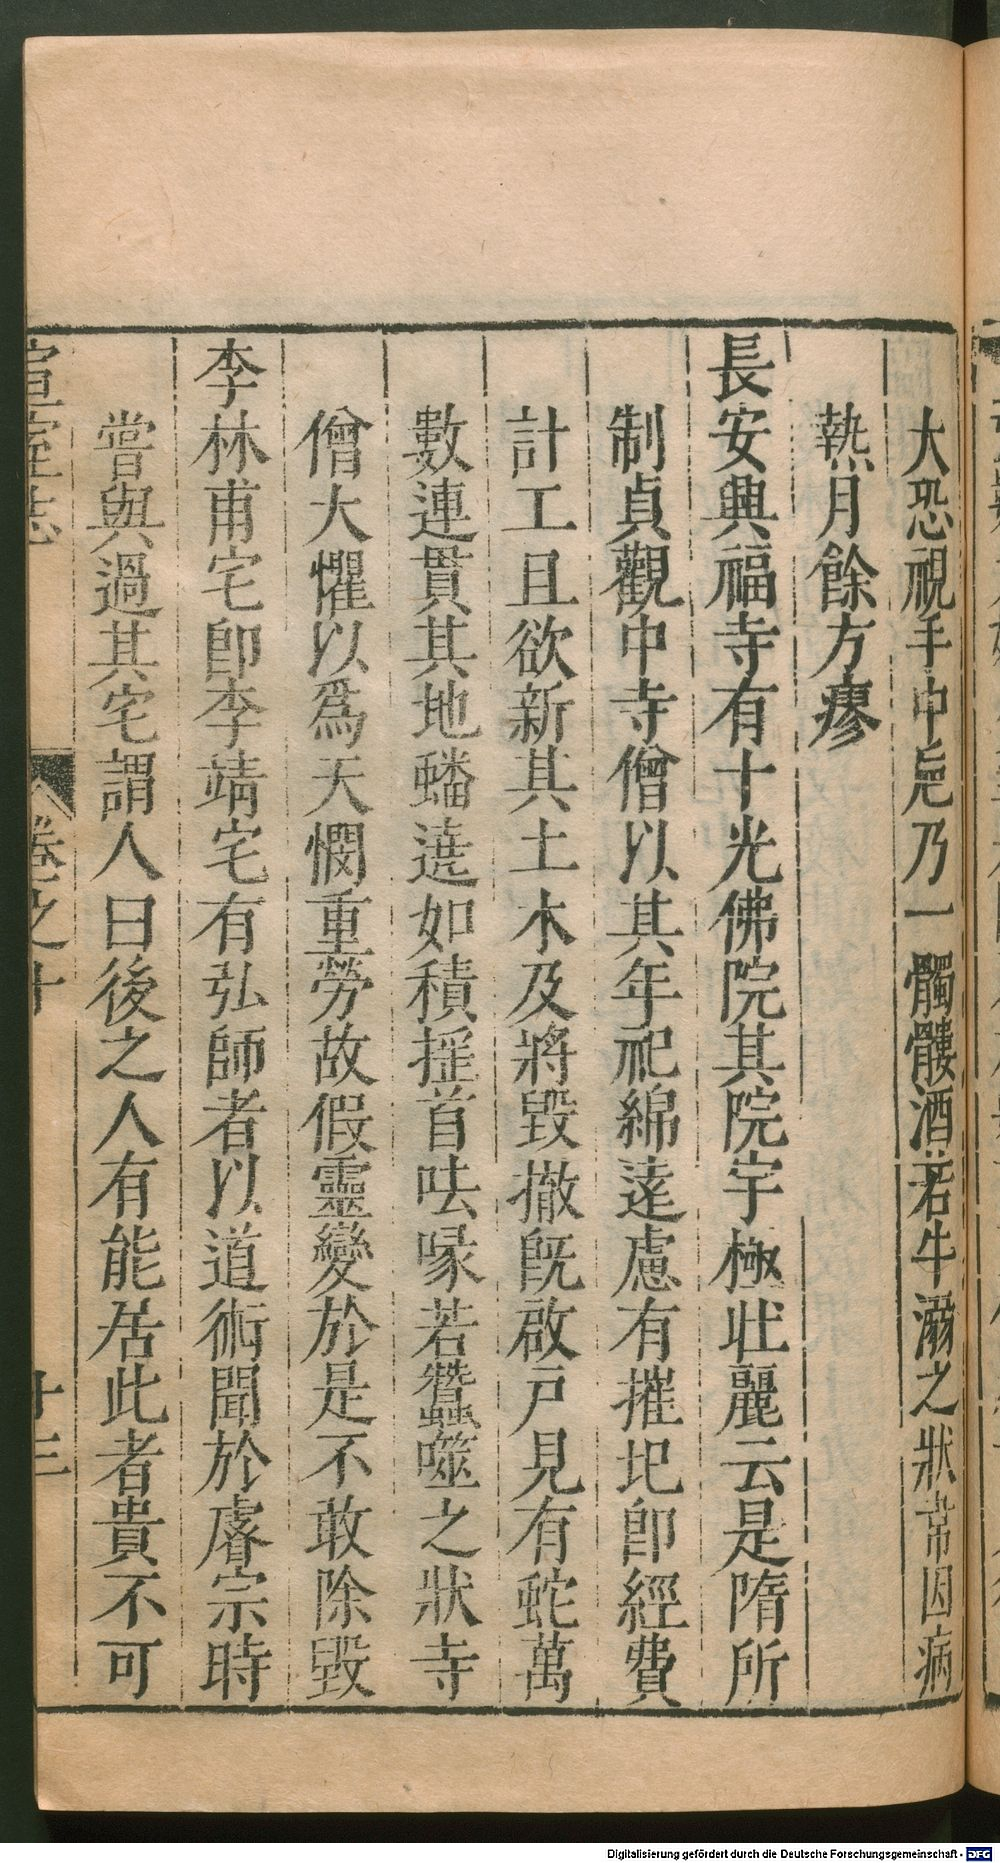 大恐視手中巵乃一髑髏酒若牛溺之狀常因病
熱月餘方瘳
長安興福寺有十光佛院其院宇極壯麗云是隋所
制貞觀中寺僧以其年祀綿遠慮有摧圯卽經費
計工且欲新其土木及將毀撤旣啟戶見有蛇萬
數連貫其地蟠遶如積揺首呿喙若蠶噬之狀寺
僧大懼以爲天憫重勞故假靈變於是不敢除毀
李林甫宅卽李靖宅有弘師者以道術聞於睿宗時
嘗與過其宅謂人曰後之人有能居此者貴不可
宣室志 卷之十 十三
Digitalisierung gefördert durch die Deutsche Forschungsgemeinschaft - DFG